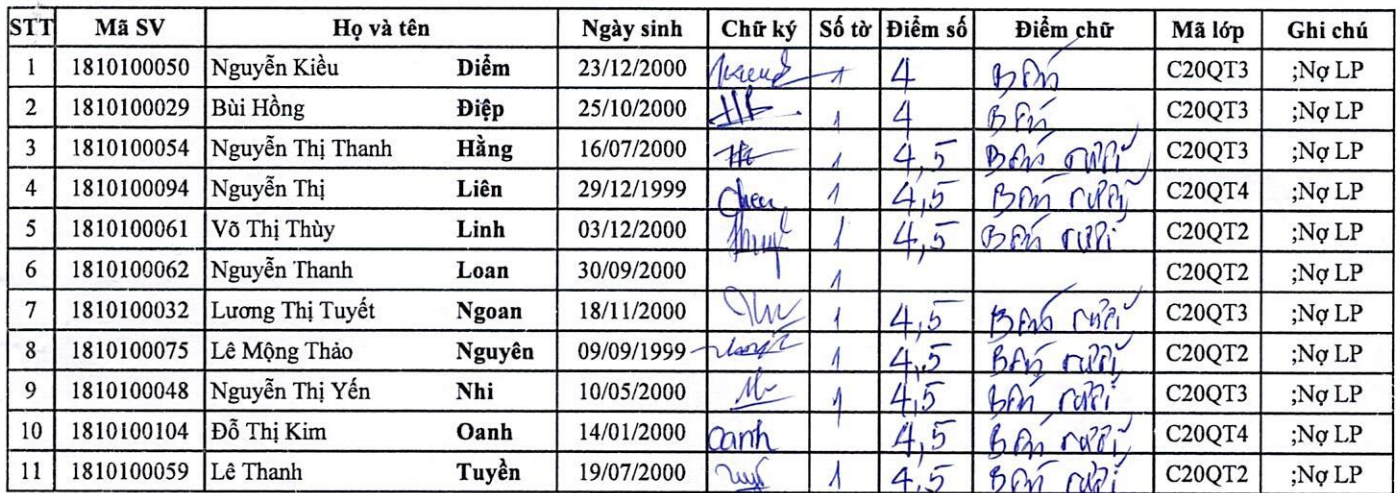 STT Mã SV Họ và tên Ngày sinh Chữ ký Số tờ Điểm số Điểm chữ Mã lớp Ghi chú
1 1810100050 Nguyễn Kiều Diễm 23/12/2000 1 4 Bốn C20QT3 ;Nợ LP
2 1810100029 Bùi Hồng Điệp 25/10/2000 1 4 Bốn C20QT3 ;Nợ LP
3 1810100054 Nguyễn Thị Thanh Hằng 16/07/2000 1 4,5 Bốn rưỡi C20QT3 ;Nợ LP
4 1810100094 Nguyễn Thị Liên 29/12/1999 1 4,5 Bốn rưỡi C20QT4 ;Nợ LP
5 1810100061 Võ Thị Thùy Linh 03/12/2000 1 4,5 Bốn rưỡi C20QT2 ;Nợ LP
6 1810100062 Nguyễn Thanh Loan 30/09/2000 1 C20QT2 ;Nợ LP
7 1810100032 Lương Thị Tuyết Ngoan 18/11/2000 1 4,5 Bốn rưỡi C20QT3 ;Nợ LP
8 1810100075 Lê Mộng Thảo Nguyên 09/09/1999 1 4,5 Bốn rưỡi C20QT2 ;Nợ LP
9 1810100048 Nguyễn Thị Yến Nhi 10/05/2000 1 4,5 Bốn rưỡi C20QT3 ;Nợ LP
10 1810100104 Đỗ Thị Kim Oanh 14/01/2000 Oanh 4,5 Bốn rưỡi C20QT4 ;Nợ LP
11 1810100059 Lê Thanh Tuyền 19/07/2000 1 4,5 Bốn rưỡi C20QT2 ;Nợ LP